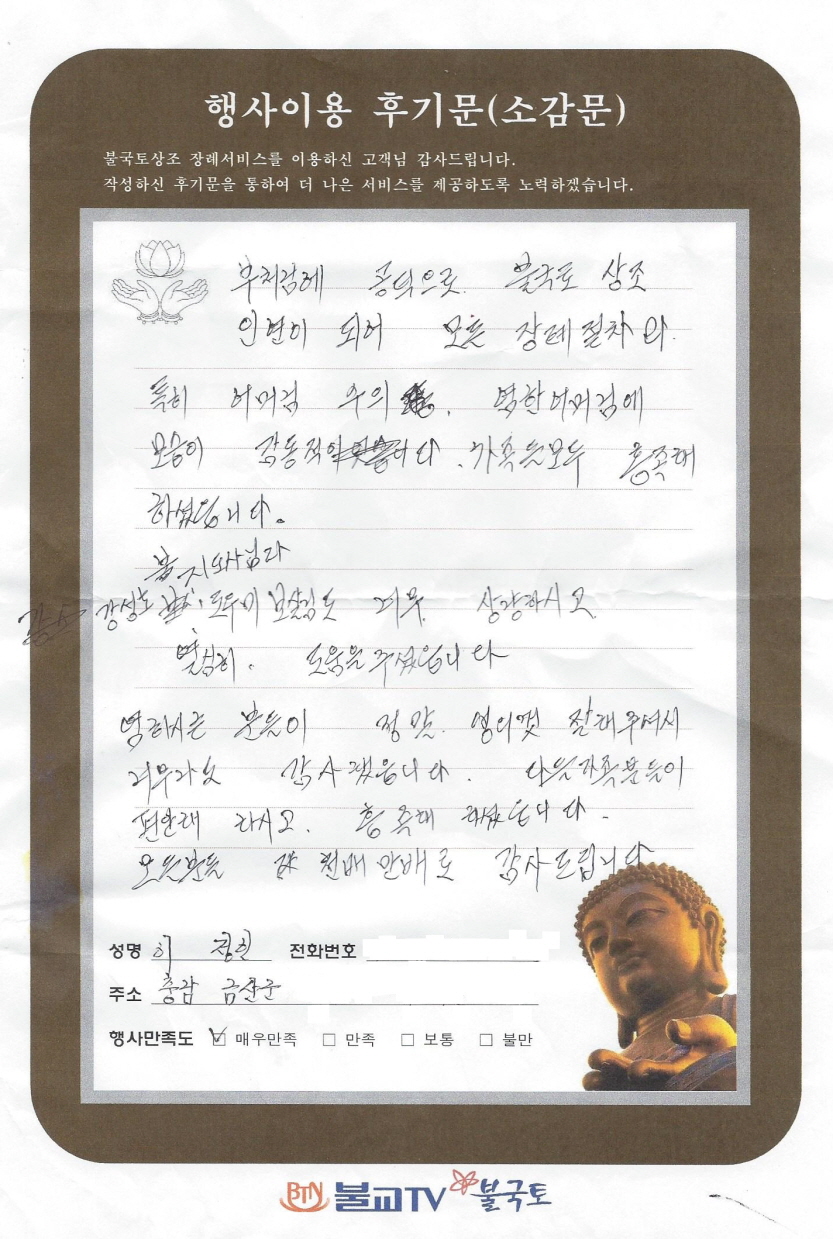 행사이용 후기문(소감문)
불국토상조 장례서비스를 이용하신 고객님 감사드립니다.
작성하신 후기문을 통하여 더 나은 서비스를 제공하도록 노력하겠습니다.
부처님께 공덕으로 불국토 상조
인연이 되어 모든 장례절차와
특히 어머님 수의 . 염한어머님에
모습이 감동적 니다. 가족은모두 흥족해
하셨읍니다.
지도사님과
강성호 도우미 보살님도 너무 상냥하시고
열심히. 도움을 주셨읍니다
염하시는 분들이 정말. 정의껏 잘해주셔서
너무나도 감사했읍니다. 나은가족분들이
편안해 하시고. 흥족해 하셨읍니다.
모든분들 께 천배 만배로 감사드립니다
성명 허 전화번호
주소 충남 금산군
행사만족도 ☑ 매우만족 □ 만족 □ 보통 □ 불만
BTN 불교TV 불국토